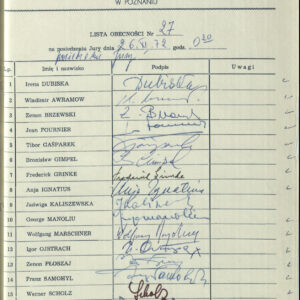 W POZNANIU
LISTA OBECNOŚCI Nr 27
na posiedzeniu Jury dnia 26.XI.72 godz. 0
Jury
L.p. Imię i nazwisko Podpis Uwagi
1 Irena DUBISKA Dubiska
2 Wladimir AWRAMOW
3 Zenon BRZEWSKI Z. Brzewski
4 Jean FOURNIER J. Fournier
5 Tibor GAŠPAREK Gašparek
6 Bronisław GIMPEL B. Gimpel
7 Frederick GRINKE Frederick Grinke
8 Anja IGNATIUS Anja Ignatius
9 Jadwiga KALISZEWSKA J. Kaliszewska
10 George MANOLIU Manoliu
11 Wolfgang MARSCHNER Wolfgang Marschner
12 Igor OJSTRACH
13 Zenon PŁOSZAJ
14 Franz SAMOHYL Samohyl
15 Werner SCHOLZ Scholz